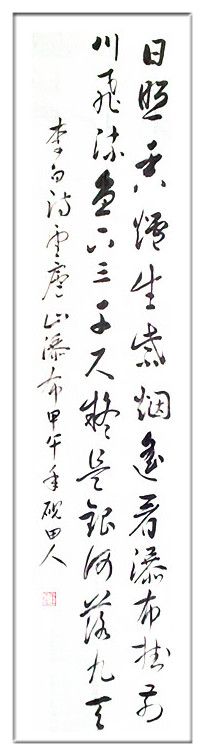 日照香爐生紫烟遙看瀑布掛前
川飛流直下三千尺疑是銀河落九天
李白詩望廬山瀑布甲午年硯田人